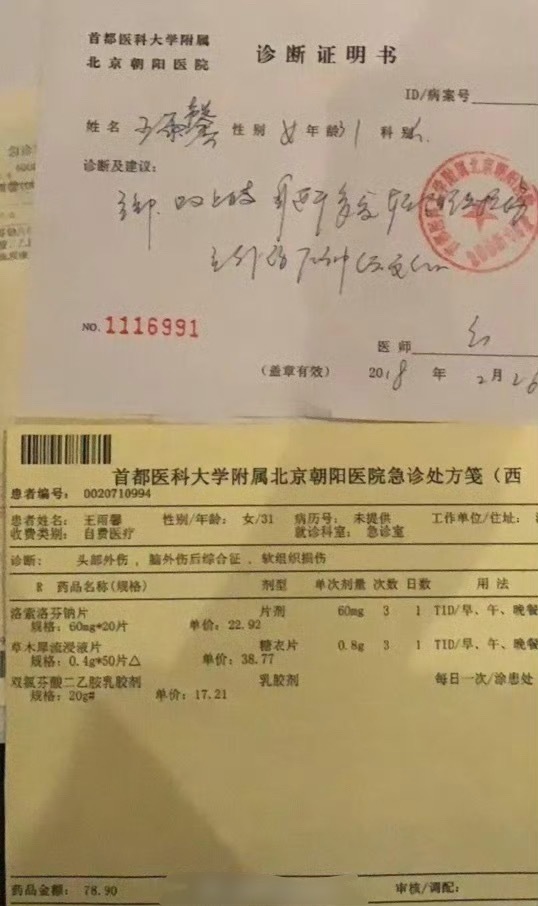 首都医科大学附属
北京朝阳医院
诊断证明书
ID/病案号
姓名 王雨馨 性别 女 年龄 31 科别
诊断及建议:
NO.1116991
医师
(盖章有效) 2018 年 2 月 26
首都医科大学附属北京朝阳医院急诊处方笺(西
患者编号: 0020710994
患者姓名: 王雨馨 性别/年龄: 女/31 病历号: 未提供 工作单位/住址:
收费类别: 自费医疗 就诊科室: 急诊室
诊断: 头部外伤 , 脑外伤后综合征 , 软组织损伤
R 药品名称(规格) 剂型 单次剂量 次数 日数 用法
洛索洛芬钠片 片剂 60mg 3 1 TID/早、午、晚餐
规格: 60mg*20片 单价: 22.92
草木犀流浸液片 糖衣片 0.8g 3 1 TID/早、午、晚餐
规格: 0.4g*50片△ 单价: 38.77
双氯芬酸二乙胺乳胶剂 乳胶剂 每日一次/涂患处
规格: 20g# 单价: 17.21
药品金额: 78.90 审核/调配: